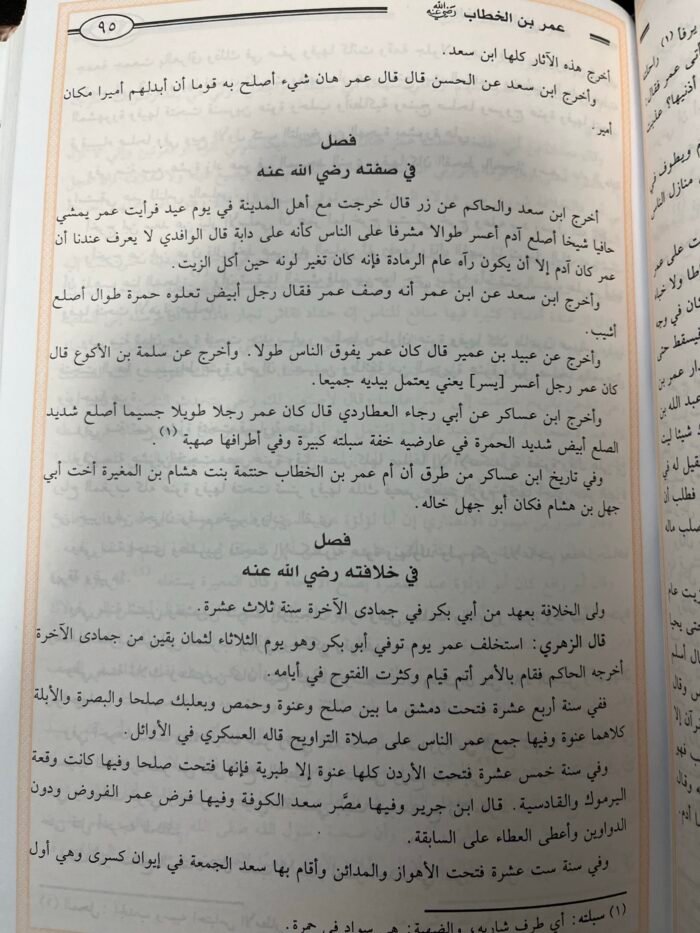 عمر بن الخطاب رضي الله عنه
٩٥
أخرج هذه الآثار كلها ابن سعد.
وأخرج ابن سعد عن الحسن قال قال عمر هان شيء أصلح به قوما أن أبدلهم أميرا مكان
أمير.
فصل
في صفته رضي الله عنه
أخرج ابن سعد والحاكم عن زر قال خرجت مع أهل المدينة في يوم عيد فرأيت عمر يمشي
حافيا شيخا أصلع آدم أعسر طوالا مشرفا على الناس كأنه على دابة قال الوافدي لا يعرف عندنا أن
عمر كان آدم إلا أن يكون رآه عام الرمادة فإنه كان تغير لونه حين أكل الزيت.
وأخرج ابن سعد عن ابن عمر أنه وصف عمر فقال رجل أبيض تعلوه حمرة طوال أصلع
أشيب.
وأخرج عن عبيد بن عمير قال كان عمر يفوق الناس طولا. وأخرج عن سلمة بن الأكوع قال
كان عمر رجل أعسر [يسر] يعني يعتمل بيديه جميعا.
وأخرج ابن عساكر عن أبي رجاء العطاردي قال كان عمر رجلا طويلا جسيما أصلع شديد
الصلع أبيض شديد الحمرة في عارضيه خفة سبلته كبيرة وفي أطرافها صهبة (١).
وفي تاريخ ابن عساكر من طرق أن أم عمر بن الخطاب حنتمة بنت هشام بن المغيرة أخت أبي
جهل بن هشام فكان أبو جهل خاله.
فصل
في خلافته رضي الله عنه
ولى الخلافة بعهد من أبي بكر في جمادى الآخرة سنة ثلاث عشرة.
قال الزهري: استخلف عمر يوم توفي أبو بكر وهو يوم الثلاثاء لثمان بقين من جمادى الآخرة
أخرجه الحاكم فقام بالأمر أتم قيام وكثرت الفتوح في أيامه.
ففي سنة أربع عشرة فتحت دمشق ما بين صلح وعنوة وحمص وبعلبك صلحا والبصرة والأبلة
كلاهما عنوة وفيها جمع عمر الناس على صلاة التراويح قاله العسكري في الأوائل.
وفي سنة خمس عشرة فتحت الأردن كلها عنوة إلا طبرية فإنها فتحت صلحا وفيها كانت وقعة
اليرموك والقادسية. قال ابن جرير وفيها مصَّر سعد الكوفة وفيها فرض عمر الفروض ودون
الدواوين وأعطى العطاء على السابقة.
وفي سنة ست عشرة فتحت الأهواز والمدائن وأقام بها سعد الجمعة في إيوان كسرى وهي أول
(١) سبلته: أي طرف شاربه، والصهبة: هي سواد في حمرة.